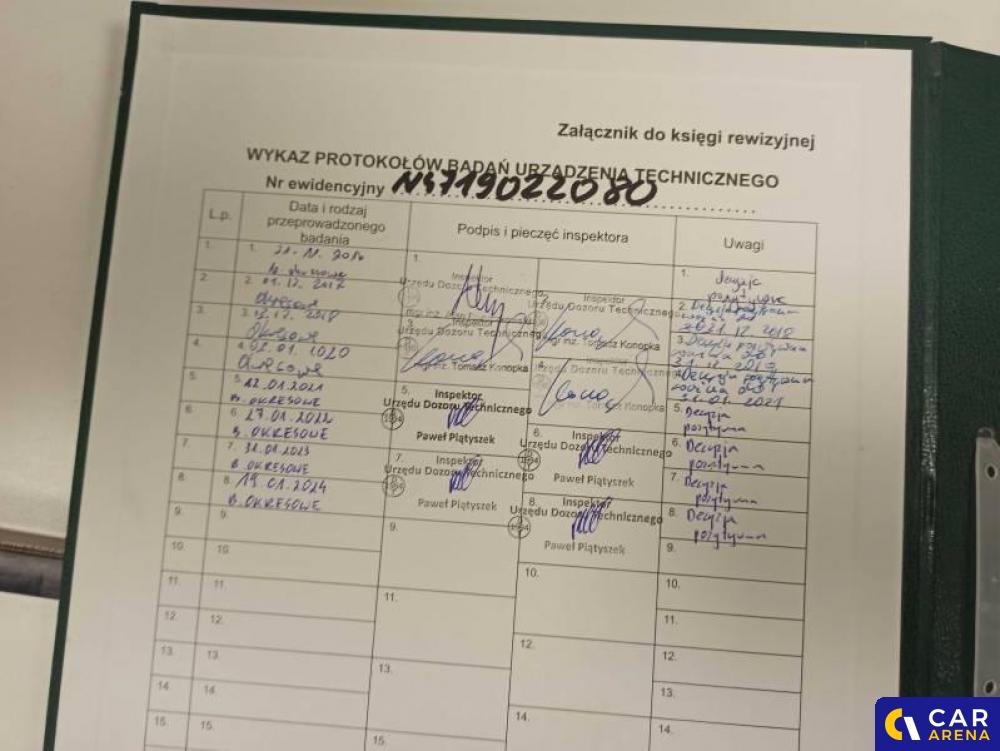 Załącznik do księgi rewizyjnej
WYKAZ PROTOKOŁÓW BADAŃ URZĄDZENIA TECHNICZNEGO
Nr ewidencyjny
L.p.
Data i rodzaj
przeprowadzonego
badania
Podpis i pieczęć inspektora
Uwagi
1.
1.
1.
1. Decyzja
pozytywna
2.
2. 01.12.2017
okresowe
2.
Inspektor
Urzędu Dozoru Technicznego
mgr inż. Tomasz Konopka
3.
3.
Okresowe
3.
Inspektor
Urzędu Dozoru Technicznego
mgr inż. Tomasz Konopka
3. Decyzja pozytywna
4.
4.
Okresowe
4.
Inspektor
Urzędu Dozoru Technicznego
mgr inż. Tomasz Konopka
4. Decyzja pozytywna
5.
5. 12.01.2021
B. OKRESOWE
5.
Inspektor
Urzędu Dozoru Technicznego
Paweł Piątyszek
5. Decyzja
pozytywna
6.
6. 27.01.2022
B. OKRESOWE
6.
Inspektor
Urzędu Dozoru Technicznego
Paweł Piątyszek
6. Decyzja
pozytywna
7.
7. 31.01.2023
B. OKRESOWE
7.
Inspektor
Urzędu Dozoru Technicznego
Paweł Piątyszek
7. Decyzja
pozytywna
8.
8. 19.01.2024
B. OKRESOWE
8.
Inspektor
Urzędu Dozoru Technicznego
Paweł Piątyszek
8. Decyzja
pozytywna
9.
9.
9.
9.
10.
10.
10.
10.
11.
11.
11.
11.
12.
12.
12.
12.
13.
13.
13.
13.
14.
14.
14.
14.
15.
15.
15.
CAR
ARENA